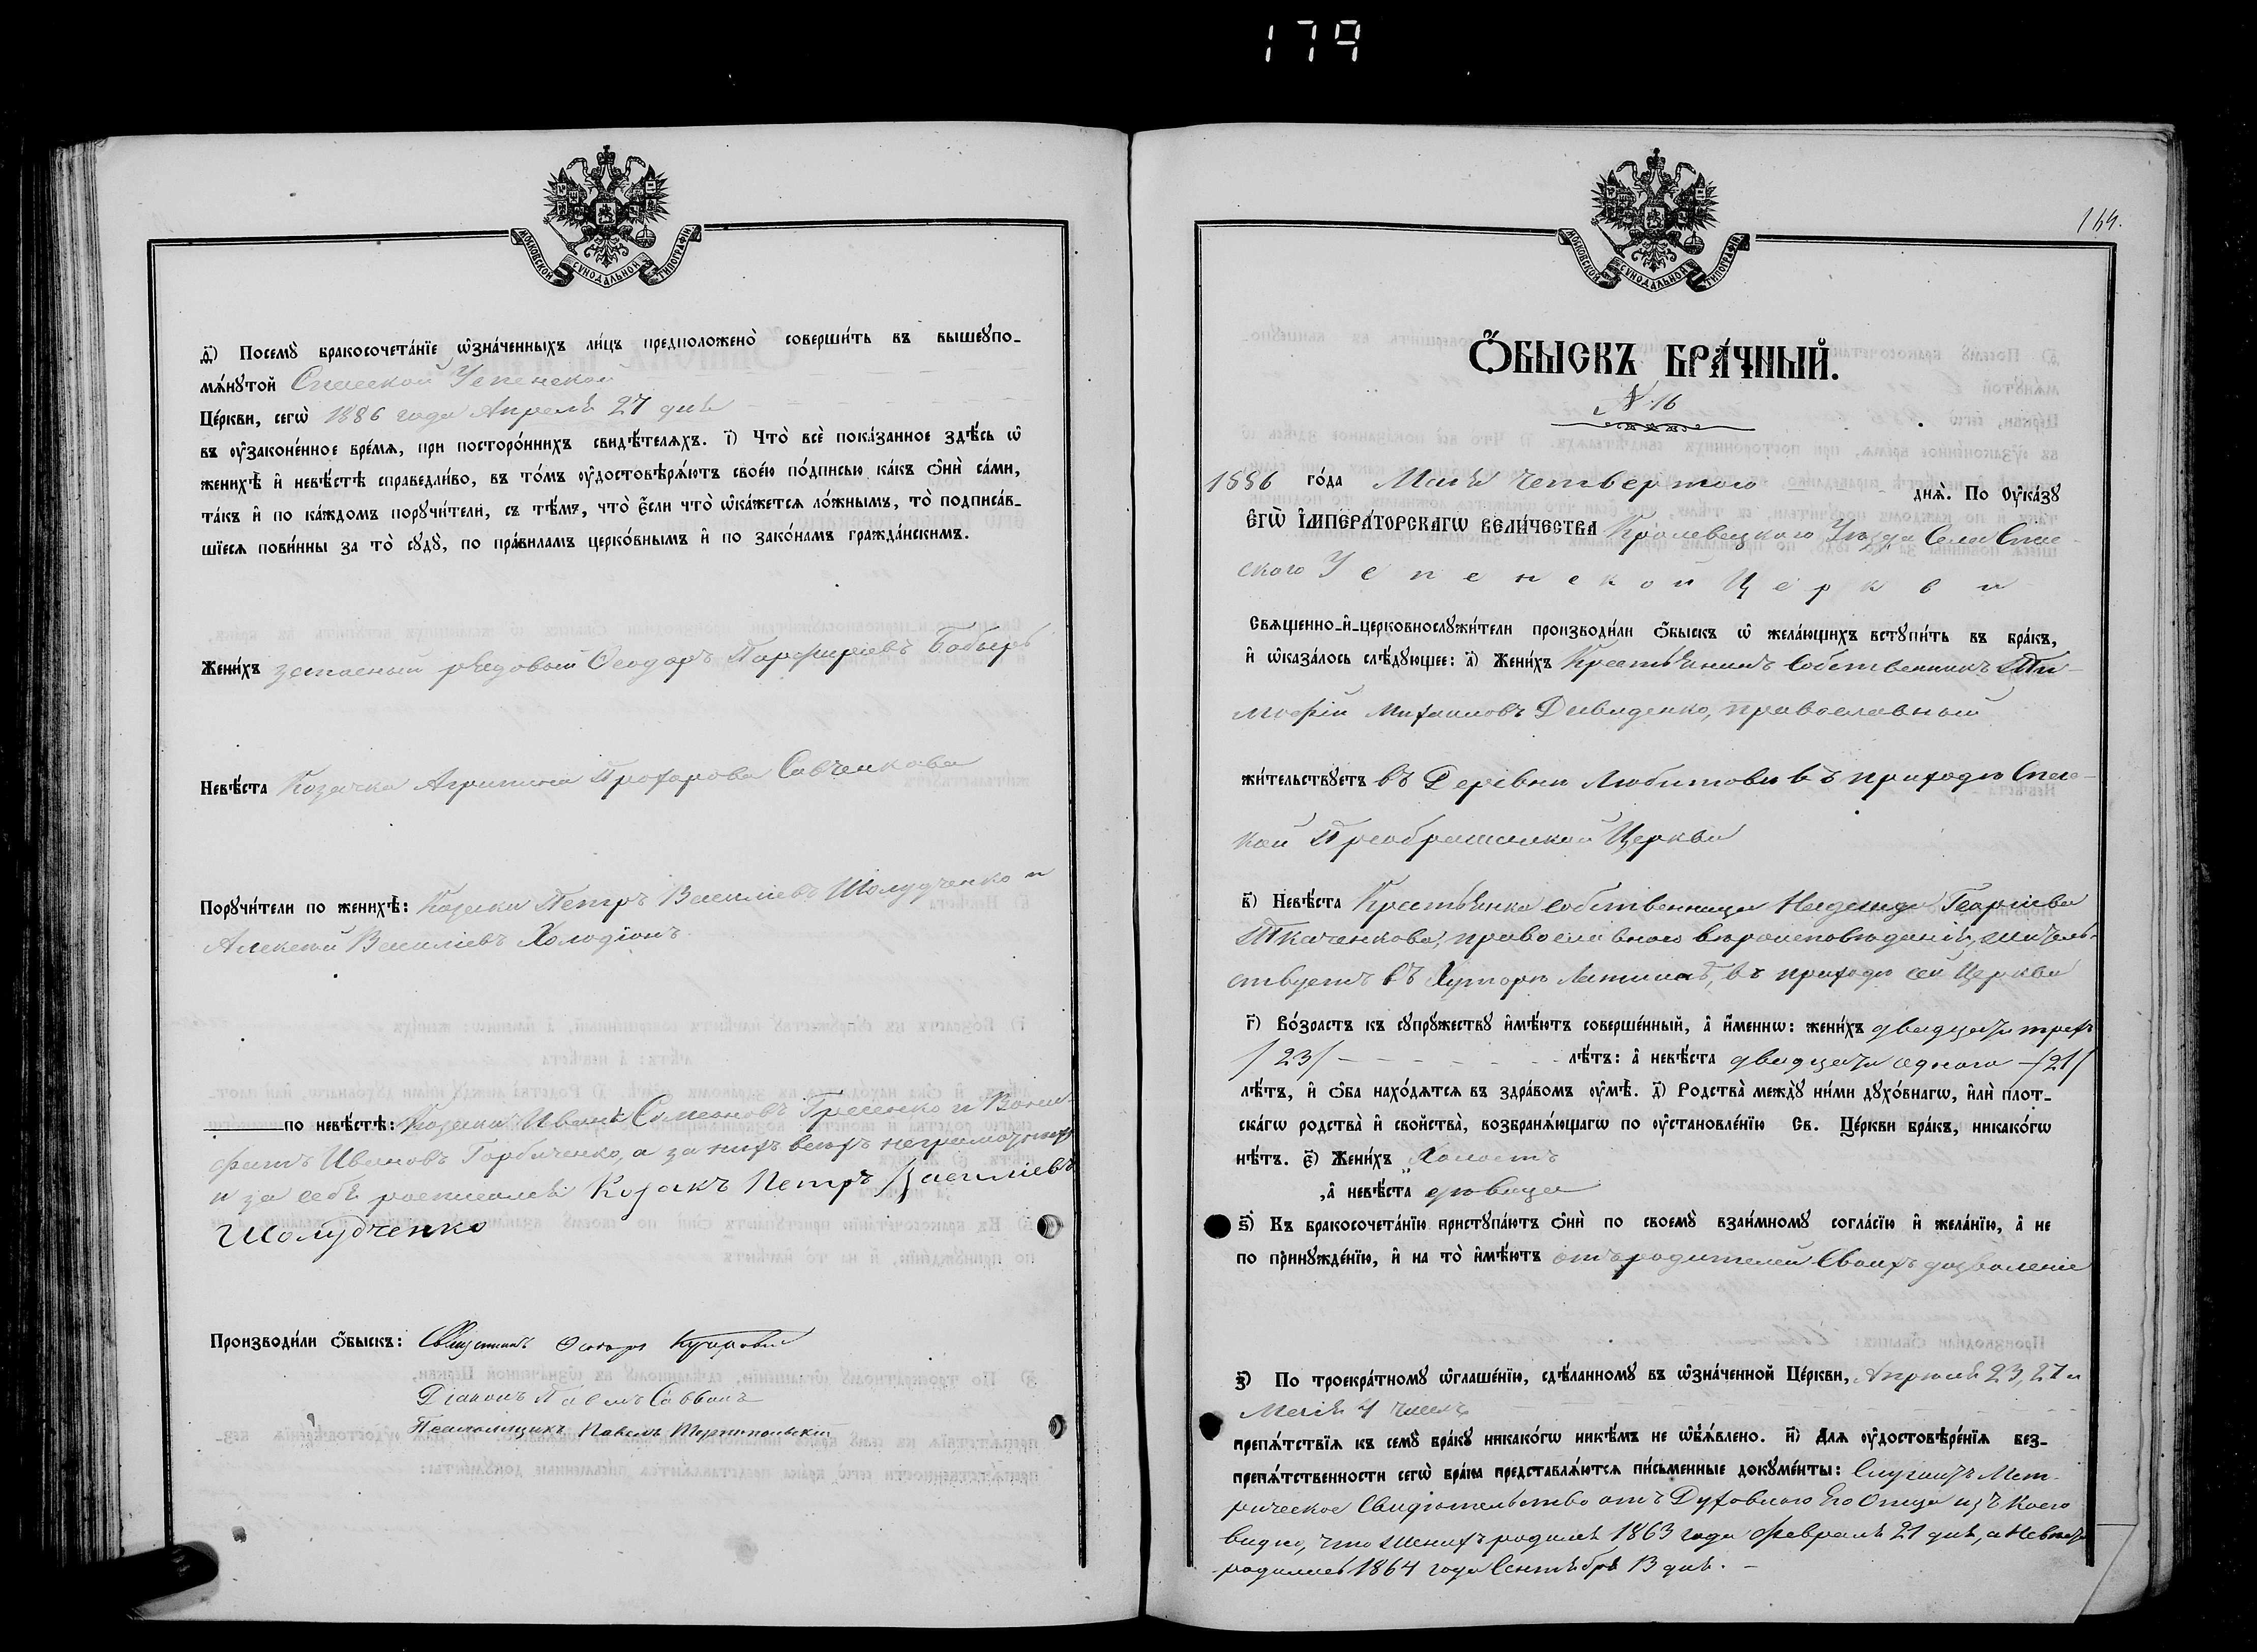 179
МОСКОВСКОЙ СѴНОДАЛЬНОЙ ТИПОГРАФІИ
д҃і) Посемꙋ̀ бракосочета́нїе ѡ҆зна́ченныхъ ли́цъ предположено̀ соверши́ть въ вышеꙋпо-
мѧ́нꙋтой Спасской Успенской
Це́ркви, сегѡ̀ 1886 года Апреля 27 дня
въ ᲂу҆зако́ненное вре́мѧ, при посторо́ннихъ свидѣ́телѧхъ. і҃) Что̀ всѐ пока́занное здѣ́сь ѡ҆
женихѣ̀ и҆ невѣ́стѣ справедли́во, въ то́мъ ᲂу҆достовѣрѧ́ютъ свое́ю по́дписью ка́къ ѻ҆нѝ са́ми,
та́къ и҆ по ка́ждомъ порꙋчи́тели, съ тѣ́мъ, что̀ є҆́сли что̀ ѡ҆ка́жетсѧ ло́жнымъ, то̀ подписа́в-
шїесѧ пови́нны за то̀ сꙋдꙋ̀, по пра́виламъ церко́внымъ и҆ по зако́намъ гражда́нскимъ.
Жени́хъ запасный рядовой Ѳеодоръ Парфиріевъ Бобырь
Невѣ́ста Козачка Агрипина Прохорова Савченкова
Порꙋчи́тели по женихѣ̀: Козаки Петръ Василіевъ Шолудченко и
Алексѣй Василіевъ Холодіонъ
по невѣ́стѣ: Козаки Иванъ Симеоновъ и
Ивановъ Горбаченко, а за нихъ всѣхъ неграмотныхъ
и за себя росписался Козакъ Петръ Василіевъ
Шолудченко
Производи́ли ѻ҆́быскъ: Священникъ Ѳеодоръ
Діаконъ Павелъ Саввичъ
Псаломщикъ Павелъ
164.
МОСКОВСКОЙ СѴНОДАЛЬНОЙ ТИПОГРАФІИ
Ѻ҆́БЫСКЪ БРА́ЧНЫЙ.
№ 16
1886 го́да Мая Четвертого днѧ̀. По ᲂу҆ка́зꙋ
Є҆ГѠ̀ І҆МПЕРА́ТОРСКАГѠ ВЕЛИ́ЧЕСТВА Кролевецкого Уѣзда Села Спас-
ского Успенской Церкви
Свѧще́нно-и҆-церковнослꙋжи́тели производи́ли ѻ҆́быскъ ѡ҆ жела́ющихъ встꙋпи́ть въ бра́къ,
и҆ ѡ҆каза́лось слѣ́дꙋющее: а҃) Жени́хъ Крестьянинъ Собственникъ Ти-
мофій Михаиловъ Давиденко, православный
жи́тельствꙋетъ въ Деревни Любитови въ приходѣ Спас-
кой Преображенской Церкви
в҃) Невѣ́ста Крестьянка собственница Надежда Георгіева
Ткаченкова, православного вѣроисповѣданія, житель-
ствуетъ въ Хуторѣ въ приходѣ сей Церкви
г҃) Во́зрастъ къ сꙋпрꙋ́жествꙋ и҆мѣ́ютъ соверше́нный, а҆ и҆́меннѡ: жени́хъ двадцати трехъ
/23/ лѣ́тъ: а҆ невѣ́ста двадцати одного /21/
лѣ́тъ, и҆ ѻ҆́ба нахо́дѧтсѧ въ здра́вомъ ᲂу҆мѣ̀. д҃) Родства̀ междꙋ̀ ни́ми дꙋхо́внагѡ, и҆лѝ плот-
ска́гѡ родства̀ и҆ сво́йства̀, возбранѧ́ющагѡ по ᲂу҆становле́нїю Св. Це́ркви бра́къ, никако́гѡ
нѣ́тъ. є҃) Жени́хъ Холостъ
,а҆ невѣ́ста дѣвица
ѕ҃) Къ бракосочета́нїю пристꙋпа́ютъ ѻ҆нѝ по своемꙋ̀ взаи́мномꙋ согла́сїю и҆ жела́нїю, а҆ не
по принꙋжде́нїю, и҆ на то̀ и҆мѣ́ютъ отъ родителей Своихъ дозволеніе
з҃) По троекра́тномꙋ ѡ҆глаше́нїю, сдѣ́ланномꙋ въ ѡ҆зна́ченной Це́ркви, Апреля 23, 27 и
Мая 4 числъ
препѧ́тствїѧ къ семꙋ̀ бра́кꙋ никако́гѡ никѣ́мъ не ѡ҆б̾ѧ́влено. и҃) Длѧ ᲂу҆достовѣре́нїѧ без-
препѧ́тственности сегѡ̀ бра́ка представлѧ́ютсѧ пи́сьменные докꙋме́нты: Служитъ Мет-
рическое Свидѣтельство отъ Духовного Его Отца изъ коего
видно, что женихъ родился 1863 года февраля 21 дня, а Невѣста
родилась 1864 года Сентября 13 дня. -